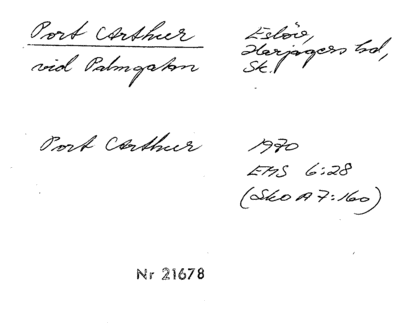 Port Arthur
vid Palmgatan
Eslöv,
Harjagers hd,
Sk.
Port Arthur
1970
EMS 6:28
(Sko A7:160)
Nr 21678